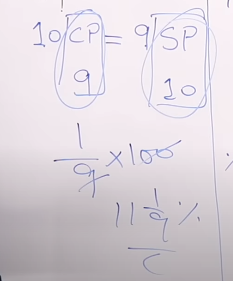 10 CP = 9 SP
9 10
1/9 × 100
11 1/9 %